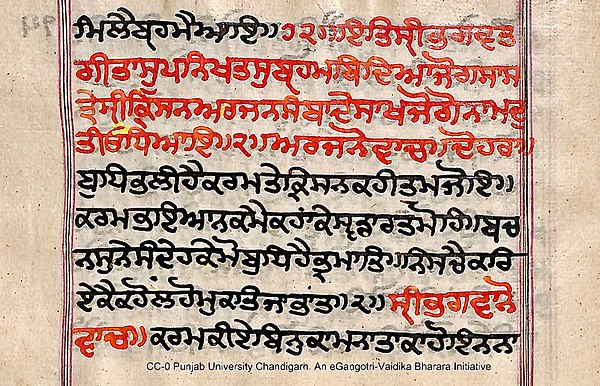 ਮਿਲੈਬ੍ਰਹਮੈਆਇ॥੭੨॥ਇਤਿਸ੍ਰੀਭਗਵਤ
ਗੀਤਾਸੁਪਨਿਖਤਸੁਬ੍ਰਹਮਬਿਦਿਆਜੋਗਸਾਸ
ਤ੍ਰੇਸ੍ਰੀਕ੍ਰਿਸਨਅਰਜਨਸੰਬਾਦੇਸਾਂਖਜੋਗੋਨਾਮਦੁ
ਤੀਓਧਿਆਇ॥੨॥ਅਰਜਨੋਵਾਚ॥ਦੋਹਰਾ॥
ਬੁਧਿਭਲੀਹੈਕਰਮਤੇਕ੍ਰਿਸਨਕਹੀਤੁਮਜੋਇ॥
ਕਰਮਭਾਇਆਨਕਮੈਕਹਾਂਕੇਸ੍ਵਡਾਰਤਮੋਹਿ॥ਬਚ
ਨਸੁਨੇਸੰਦੇਹਕੇਮੋਬੁਧਿਹੈਭ੍ਰਮਾਤਿ॥ਨਿਸਚੈਕਰਿ
ਏਕੈਕਹੋਂਲਹੋਮੁਕਤਿਜਾਭਾਂਤ॥੨॥ਸ੍ਰੀਭਗਵਾਨੋ
ਵਾਚ॥ਕਰਮਕੀਏਬਿਨੁਕਾਮਨਾਤਾਕਾਹੋਇਨਨਾ
CC-0 Punjab University Chandigarh. An eGangotri-Vaidika Bharara Initiative